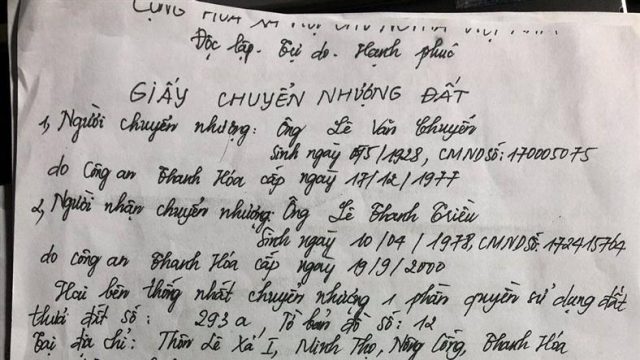 CỘNG HÒA XÃ HỘI CHỦ NGHĨA VIỆT NAM
Độc lập - Tự do - Hạnh phúc
GIẤY CHUYỂN NHƯỢNG ĐẤT
1, Người chuyển nhượng: Ông Lê Văn Chuyển
Sinh ngày 05/1928, CMND số: 170005075
do Công an Thanh Hóa cấp ngày 17/12/1977
2, Người nhận chuyển nhượng: Ông Lê Thanh Triều
Sinh ngày 10/04/1978, CMND số: 172415764
do công an Thanh Hóa cấp ngày 19/9/2000
Hai bên thống nhất chuyển nhượng 1 phần quyền sử dụng đất
thửa đất số: 293a, Tờ bản đồ số: 12
Tại địa chỉ: Thôn Lê Xá I, Minh Thọ, Nông Cống, Thanh Hóa